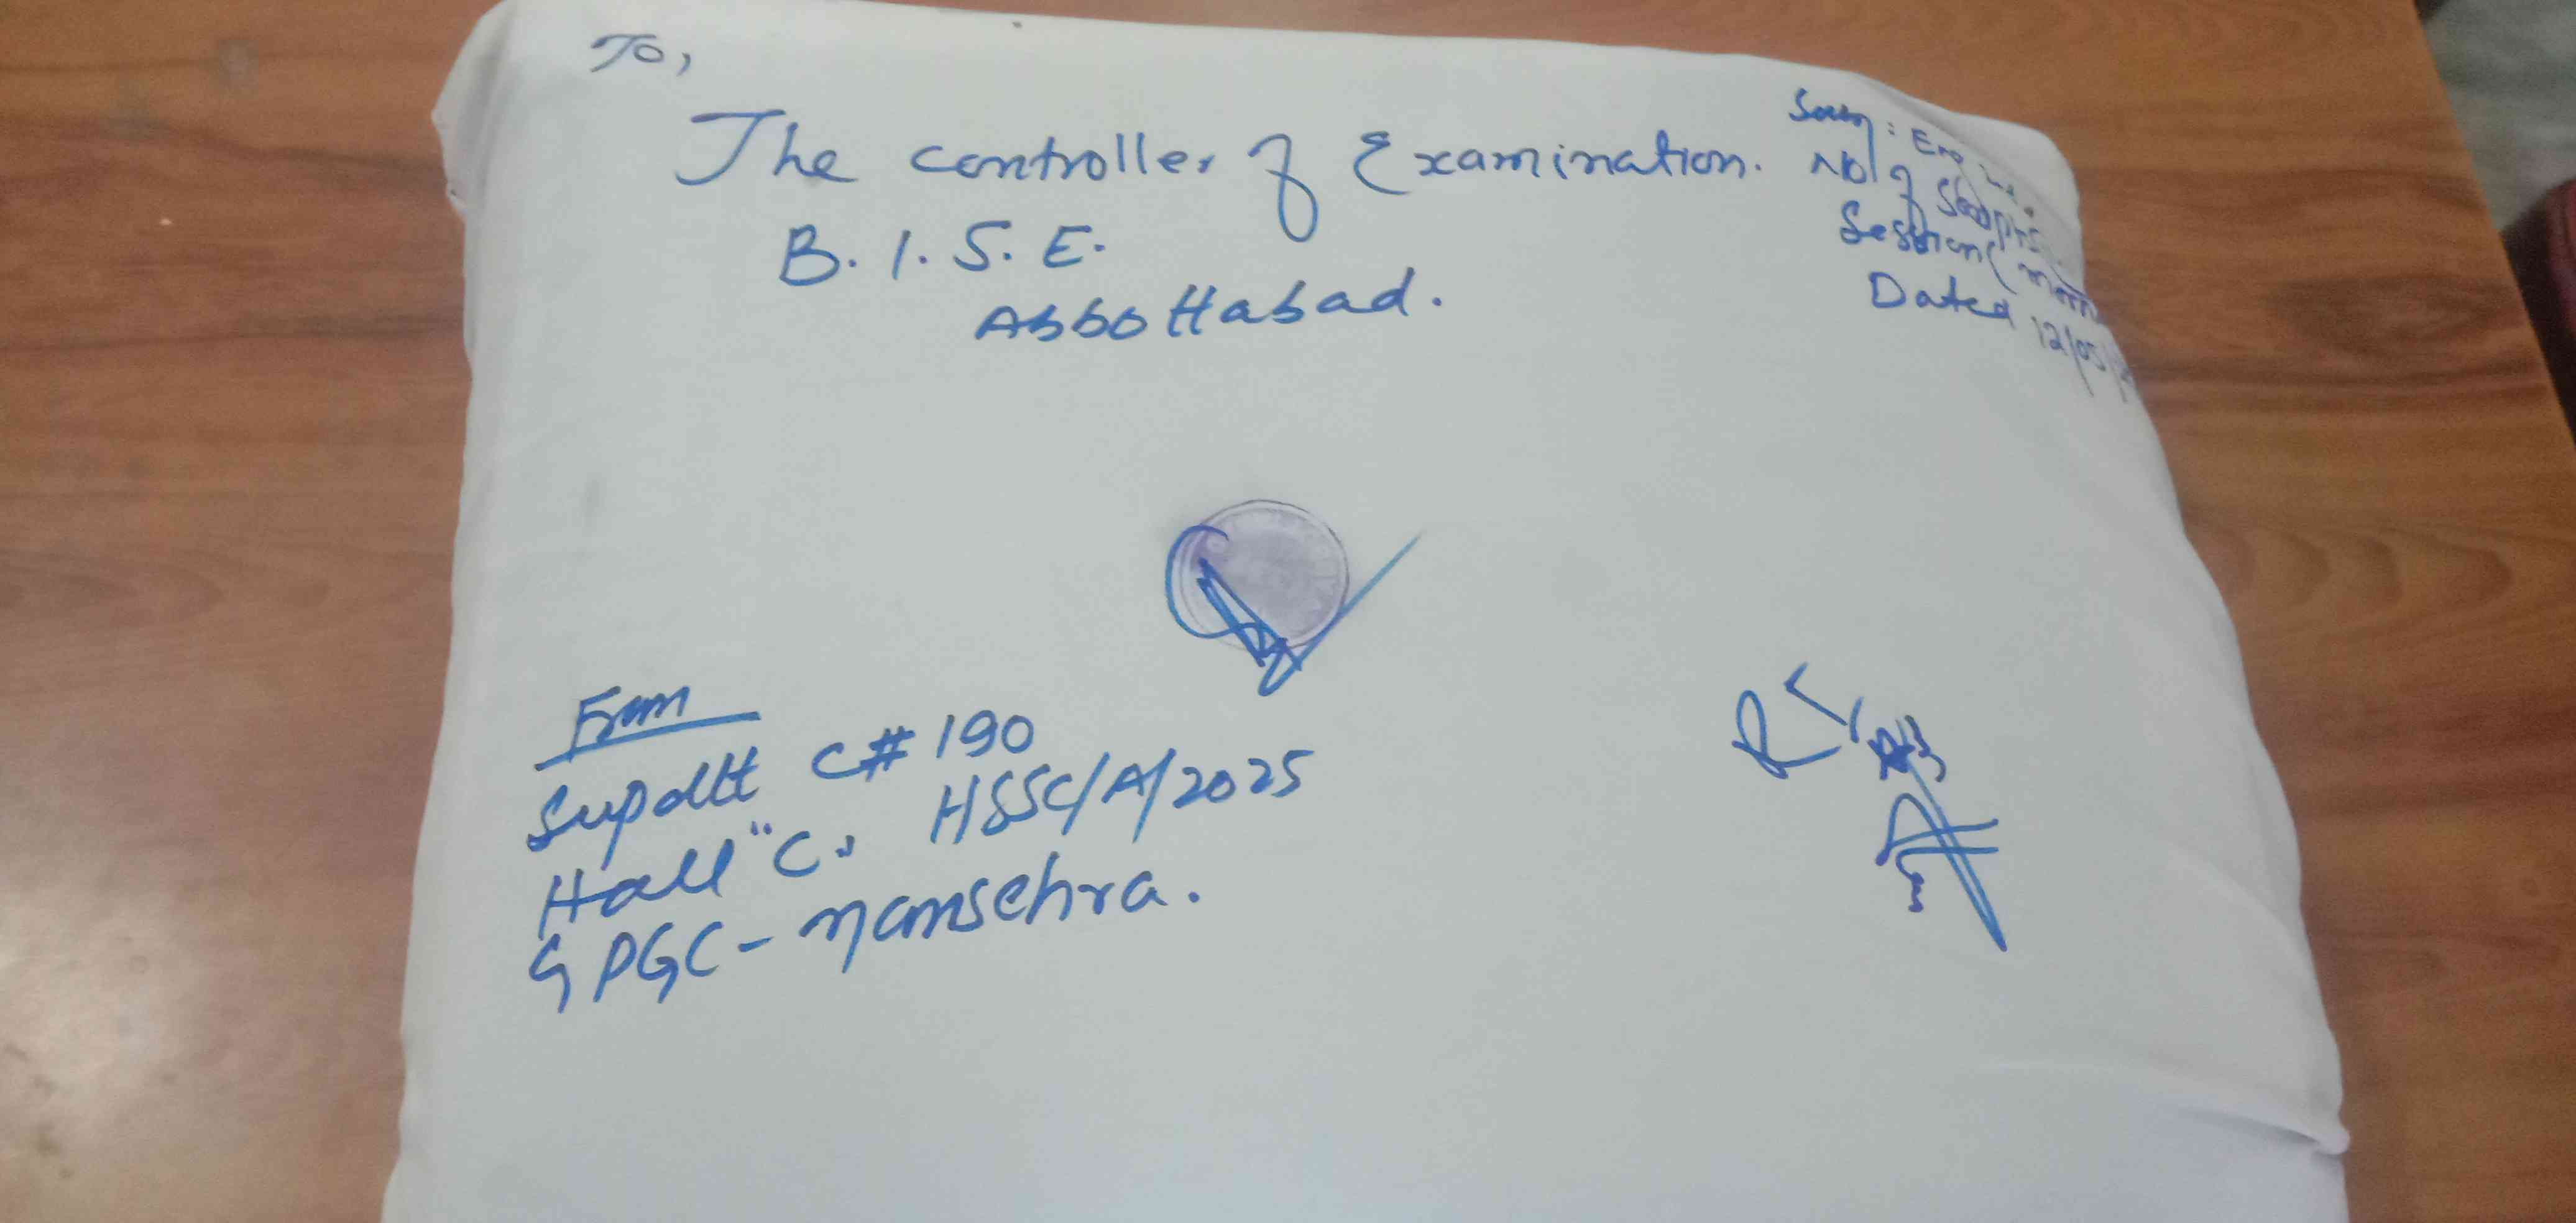 To,
The controller of Examination.
B. I. S. E.
Abbottabad.
No of
Session ( morn
Dated 12/05/
From
Supdtt C# 190
Hall "C" HSSC/A/2025
GPGC - Mansehra.